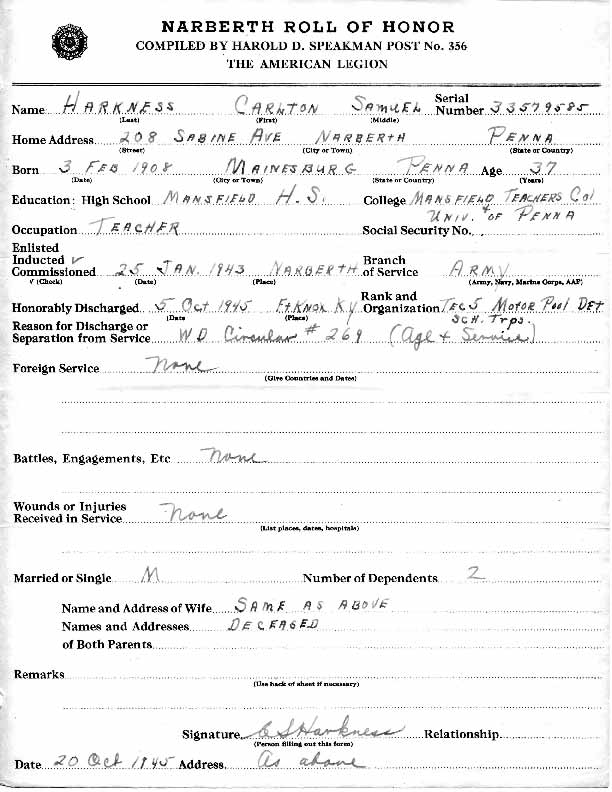 NARBERTH ROLL OF HONOR
COMPILED BY HAROLD D. SPEAKMAN POST No. 356
THE AMERICAN LEGION
Name HARKNESS CARLTON SAMUEL Serial Number 33579585
(Last) (First) (Middle)
Home Address 208 SABINE AVE NARBERTH PENNA
(Street) (City or Town) (State or Country)
Born 3 FEB 1908 MAINESBURG PENNA Age 37
(Date) (City or Town) (State or Country) (Years)
Education: High School MANSFIELD H.S. College MANSFIELD TEACHERS Col
+ UNIV. OF PENNA
Occupation TEACHER Social Security No.
Enlisted
Inducted √
Commissioned 25 JAN. 1943 NARBERTH Branch of Service ARMY
√ (Check) (Date) (Place) (Army, Navy, Marine Corps, AAF)
Honorably Discharged 5 Oct 1945 Ft KNOX KY Rank and Organization TEC5 MOTOR POOL DET
(Date (Place) SCH. Trps.
Reason for Discharge or
Separation from Service WD Circular # 269 (Age + Service)
Foreign Service None
(Give Countries and Dates)
Battles, Engagements, Etc None
Wounds or Injuries
Received in Service None
(List places, dates, hospitals)
Married or Single M Number of Dependents 2
Name and Address of Wife SAME AS ABOVE
Names and Addresses DECEASED
of Both Parents
Remarks
(Use back of sheet if necessary)
Signature C S Harkness Relationship
(Person filling out this form)
Date 20 Oct 1945 Address As above